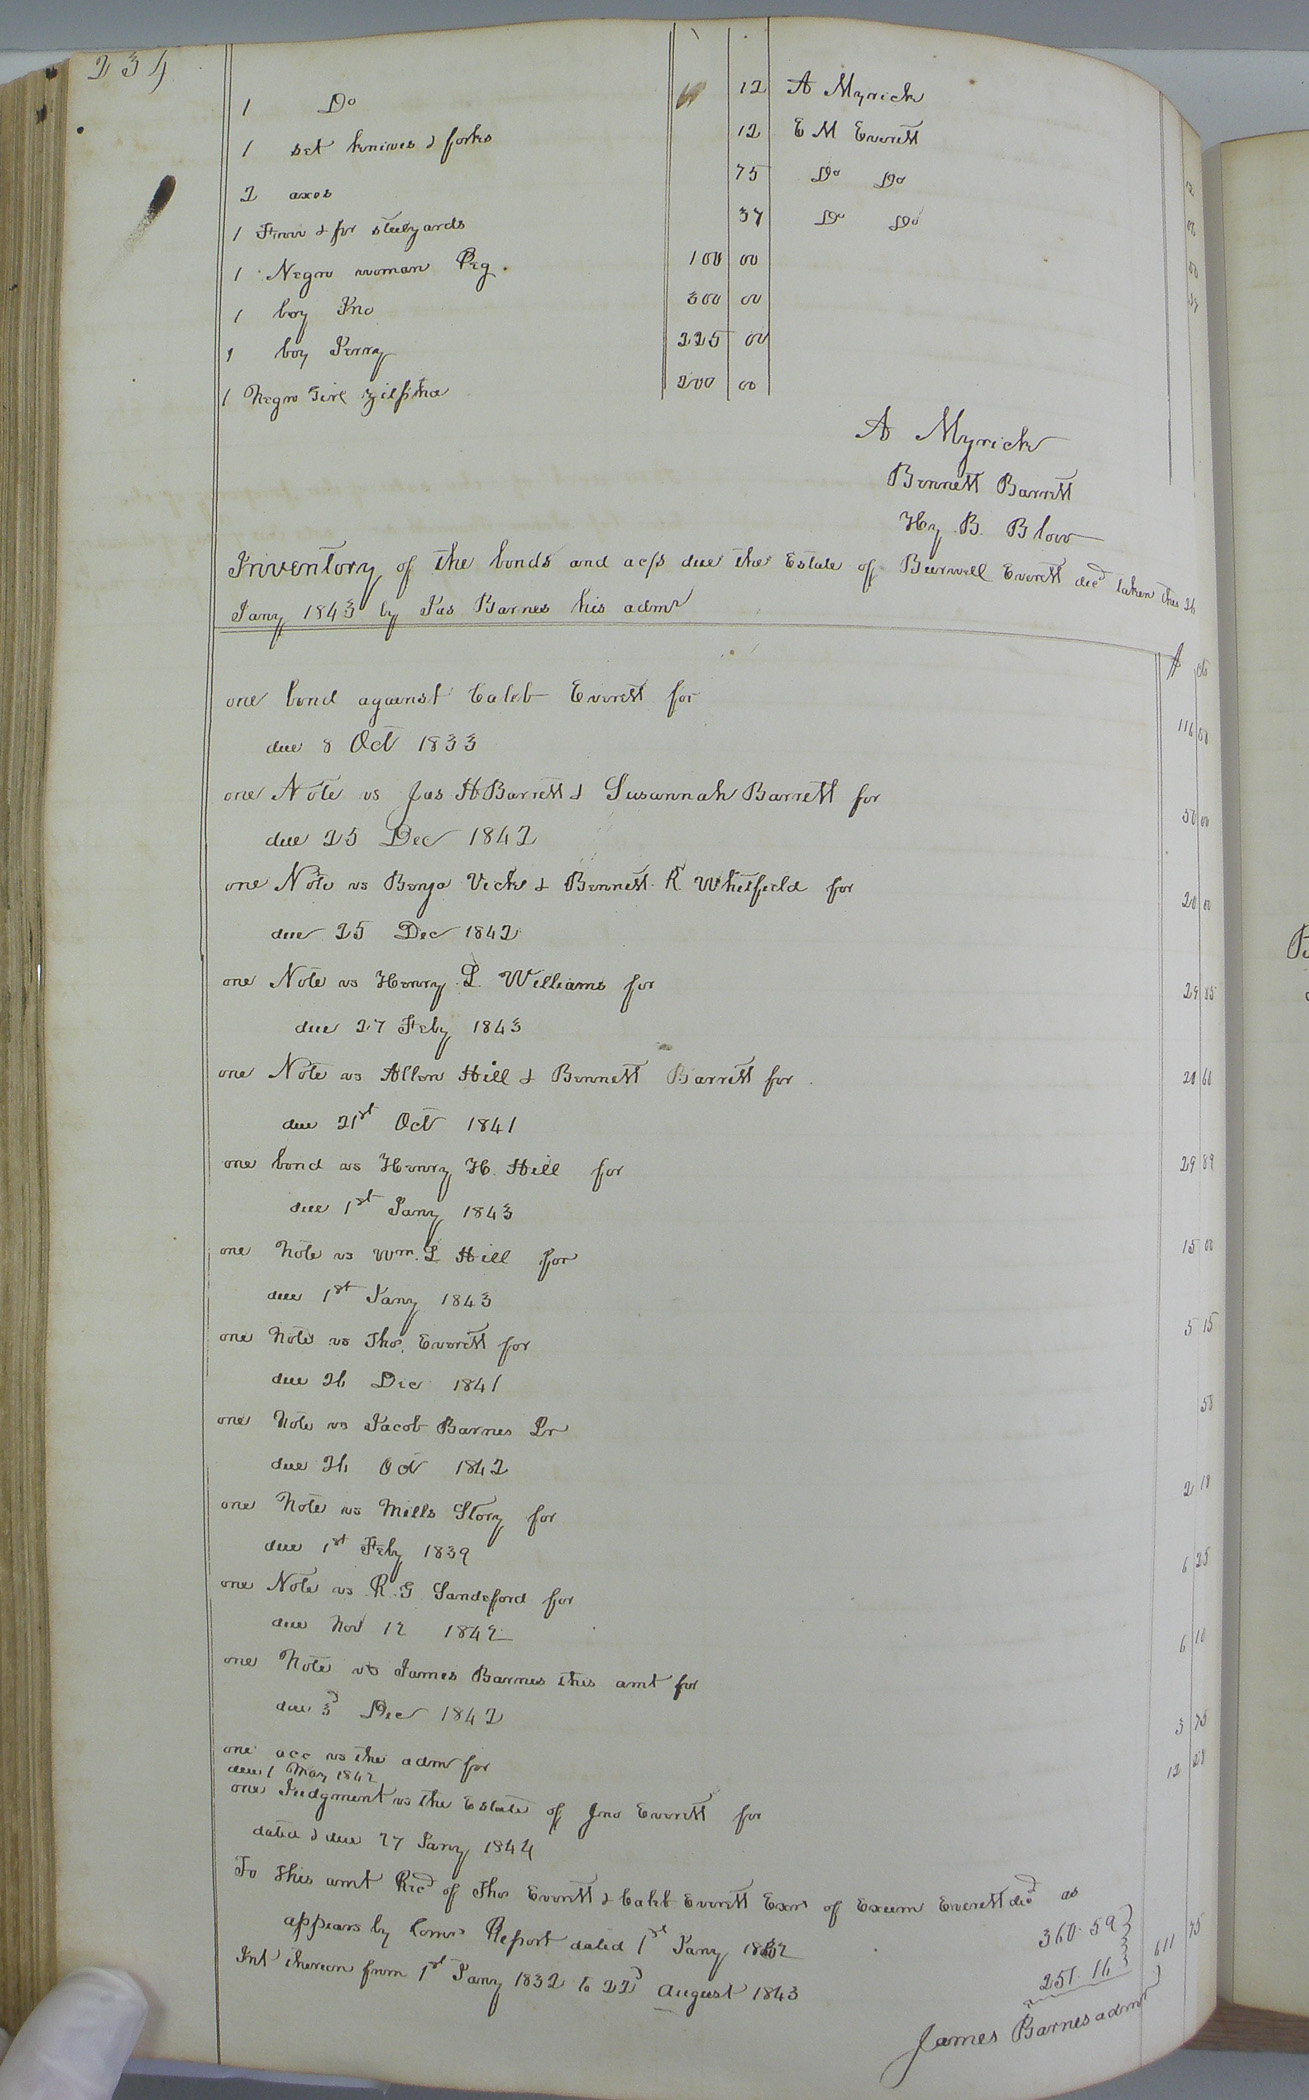 234
1 Do 12 A Myrick
1 set knives & forks 12 E M Everett
2 axes 75 Do Do
1 & pr steelyards 37 Do Do
1 Negro woman Peg. 100 00
1 boy Jno 300 00
1 boy Perry 225 00
1 Negro Girl Zilphia 200 00
A Myrick
Bennett Barrett
Hy. B. Blow
Inventory of the bonds and acps due the Estate of Burwell Everett decd taken this 26
Jany 1843 by Jas Barnes his admr
$ cts
one bond against Caleb Everett for 116 50
due 8 Oct 1833
one Note vs Jas H Barrett & Susannah Barrett for 50 00
due 25 Dec 1842
one Note vs Benja Vick & Bennett R Whitfield for 20 00
due 25 Dec 1842
one Note vs Henry L Williams for 29 85
due 27 Feby 1843
one Note vs Allen Hill & Bennett Barrett for 20 60
due 21st Oct 1841
one bond vs Henry H. Hill for 29 89
due 1st Jany 1843
one Note vs Wm. L Hill for 15 00
due 1st Jany 1843
one Note vs Tho. Everett for 5 15
due 26 Dec 1841
one Note vs Jacob Barnes Sr 58
due 26 Oct 1842
one Note vs Mills Story for 2 18
due 1st Feby 1839
one Note vs R. G Sandeford for 6 25
due Nov 12 1842
one Note vs James Barnes this amt for 6 10
due 3d Dec 1842
one acc vs the admr for 3 75
due 1 May 1842
one Judgment vs the Estate of Jno Everett for 12
dated & due 27 Jany 1844
To this amt Recd of Thos Everett & Caleb Everett Exrs of Exum Everett decd as
appears by Comrs Report dated 1st Jany 1832 360.59
Int thereon from 1st Jany 1832 to 22d August 1843 251.16 611 75
James Barnes admr